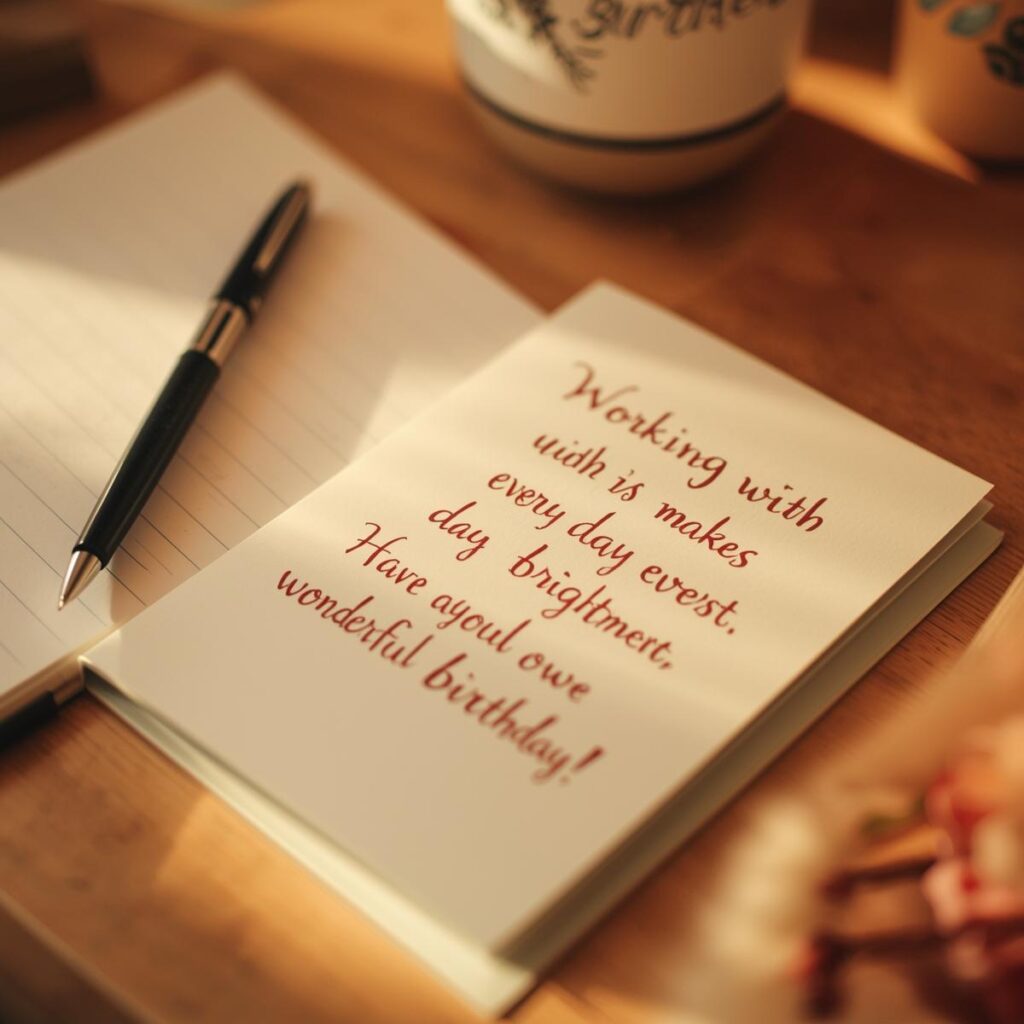 Working with
uidh is makes
every day everst.
day brightment,
Have ayoul owe
wonderful birthday!